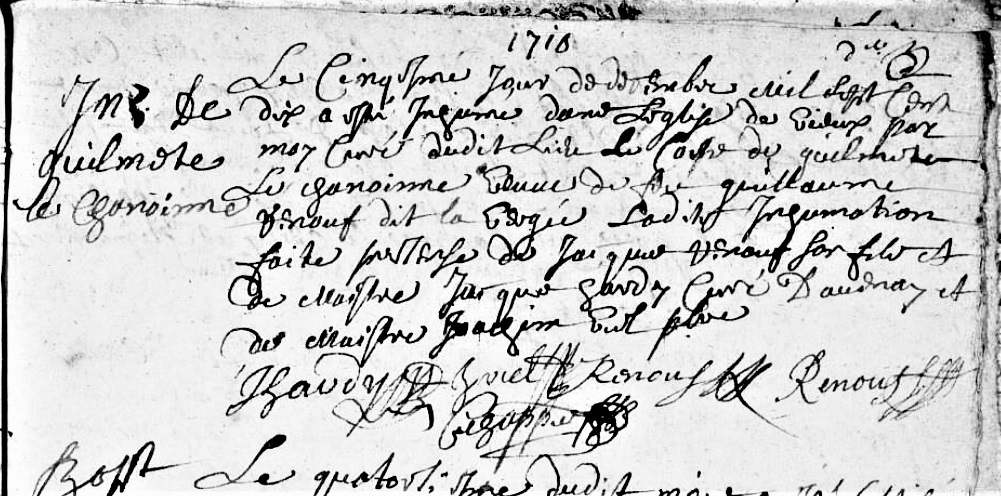 1710
Inh. de
guilmete
le Chanoinne
Le Cinqisme Jour de desembre Mil Sept Cent
dix a esté Inhumé dans Leglise de vieux par
moy Curé dudit Lieu Le Corps de guilmete
Le chanoinne veuve de feu guillaume
Renouf dit la vergée Ladite Inhumation
faite presence de Jacque Renouf son fils et
de Maistre Jacque hardy Curé Daudnay et
de Maistre Joachim viel pbre
J hardy J viel Renouf Renouf
Le quatorsisme dudit mois